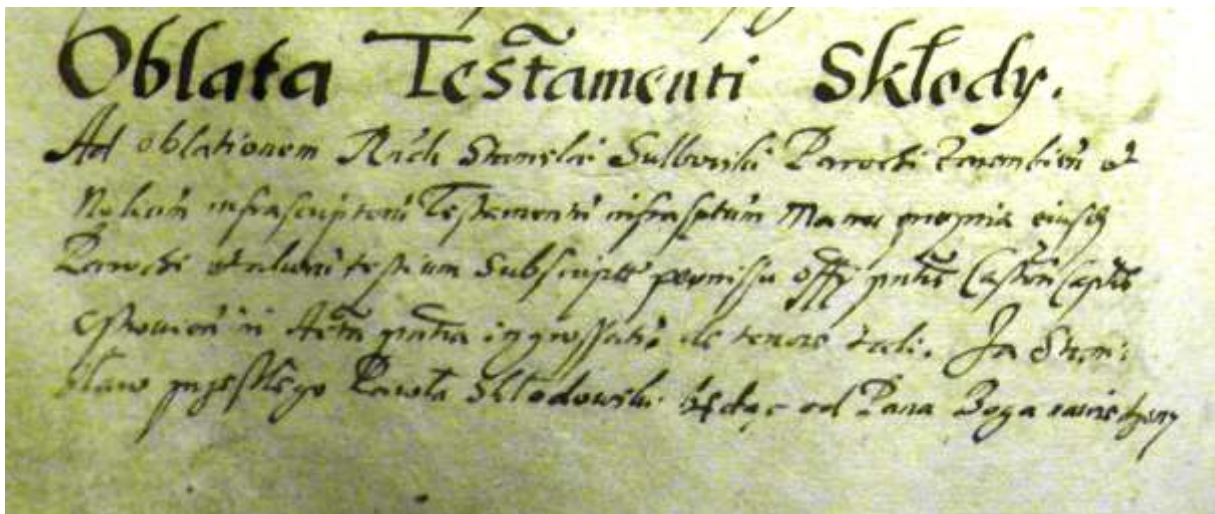 Oblata Testamenti Skłody.
Ad oblationem Stanislai Sulborski Parochi Zarembien et
infrascriptum Testamentum infrascriptum Manu propria eiusdem
Parochi et aliorum testium Subscript permissu offy Castren Capit
in Acta ingrossatum de tenore tali. Ja Stani:
sław przeszłego Pawła Skłodowski będąc od Pana Boga nawiedzony